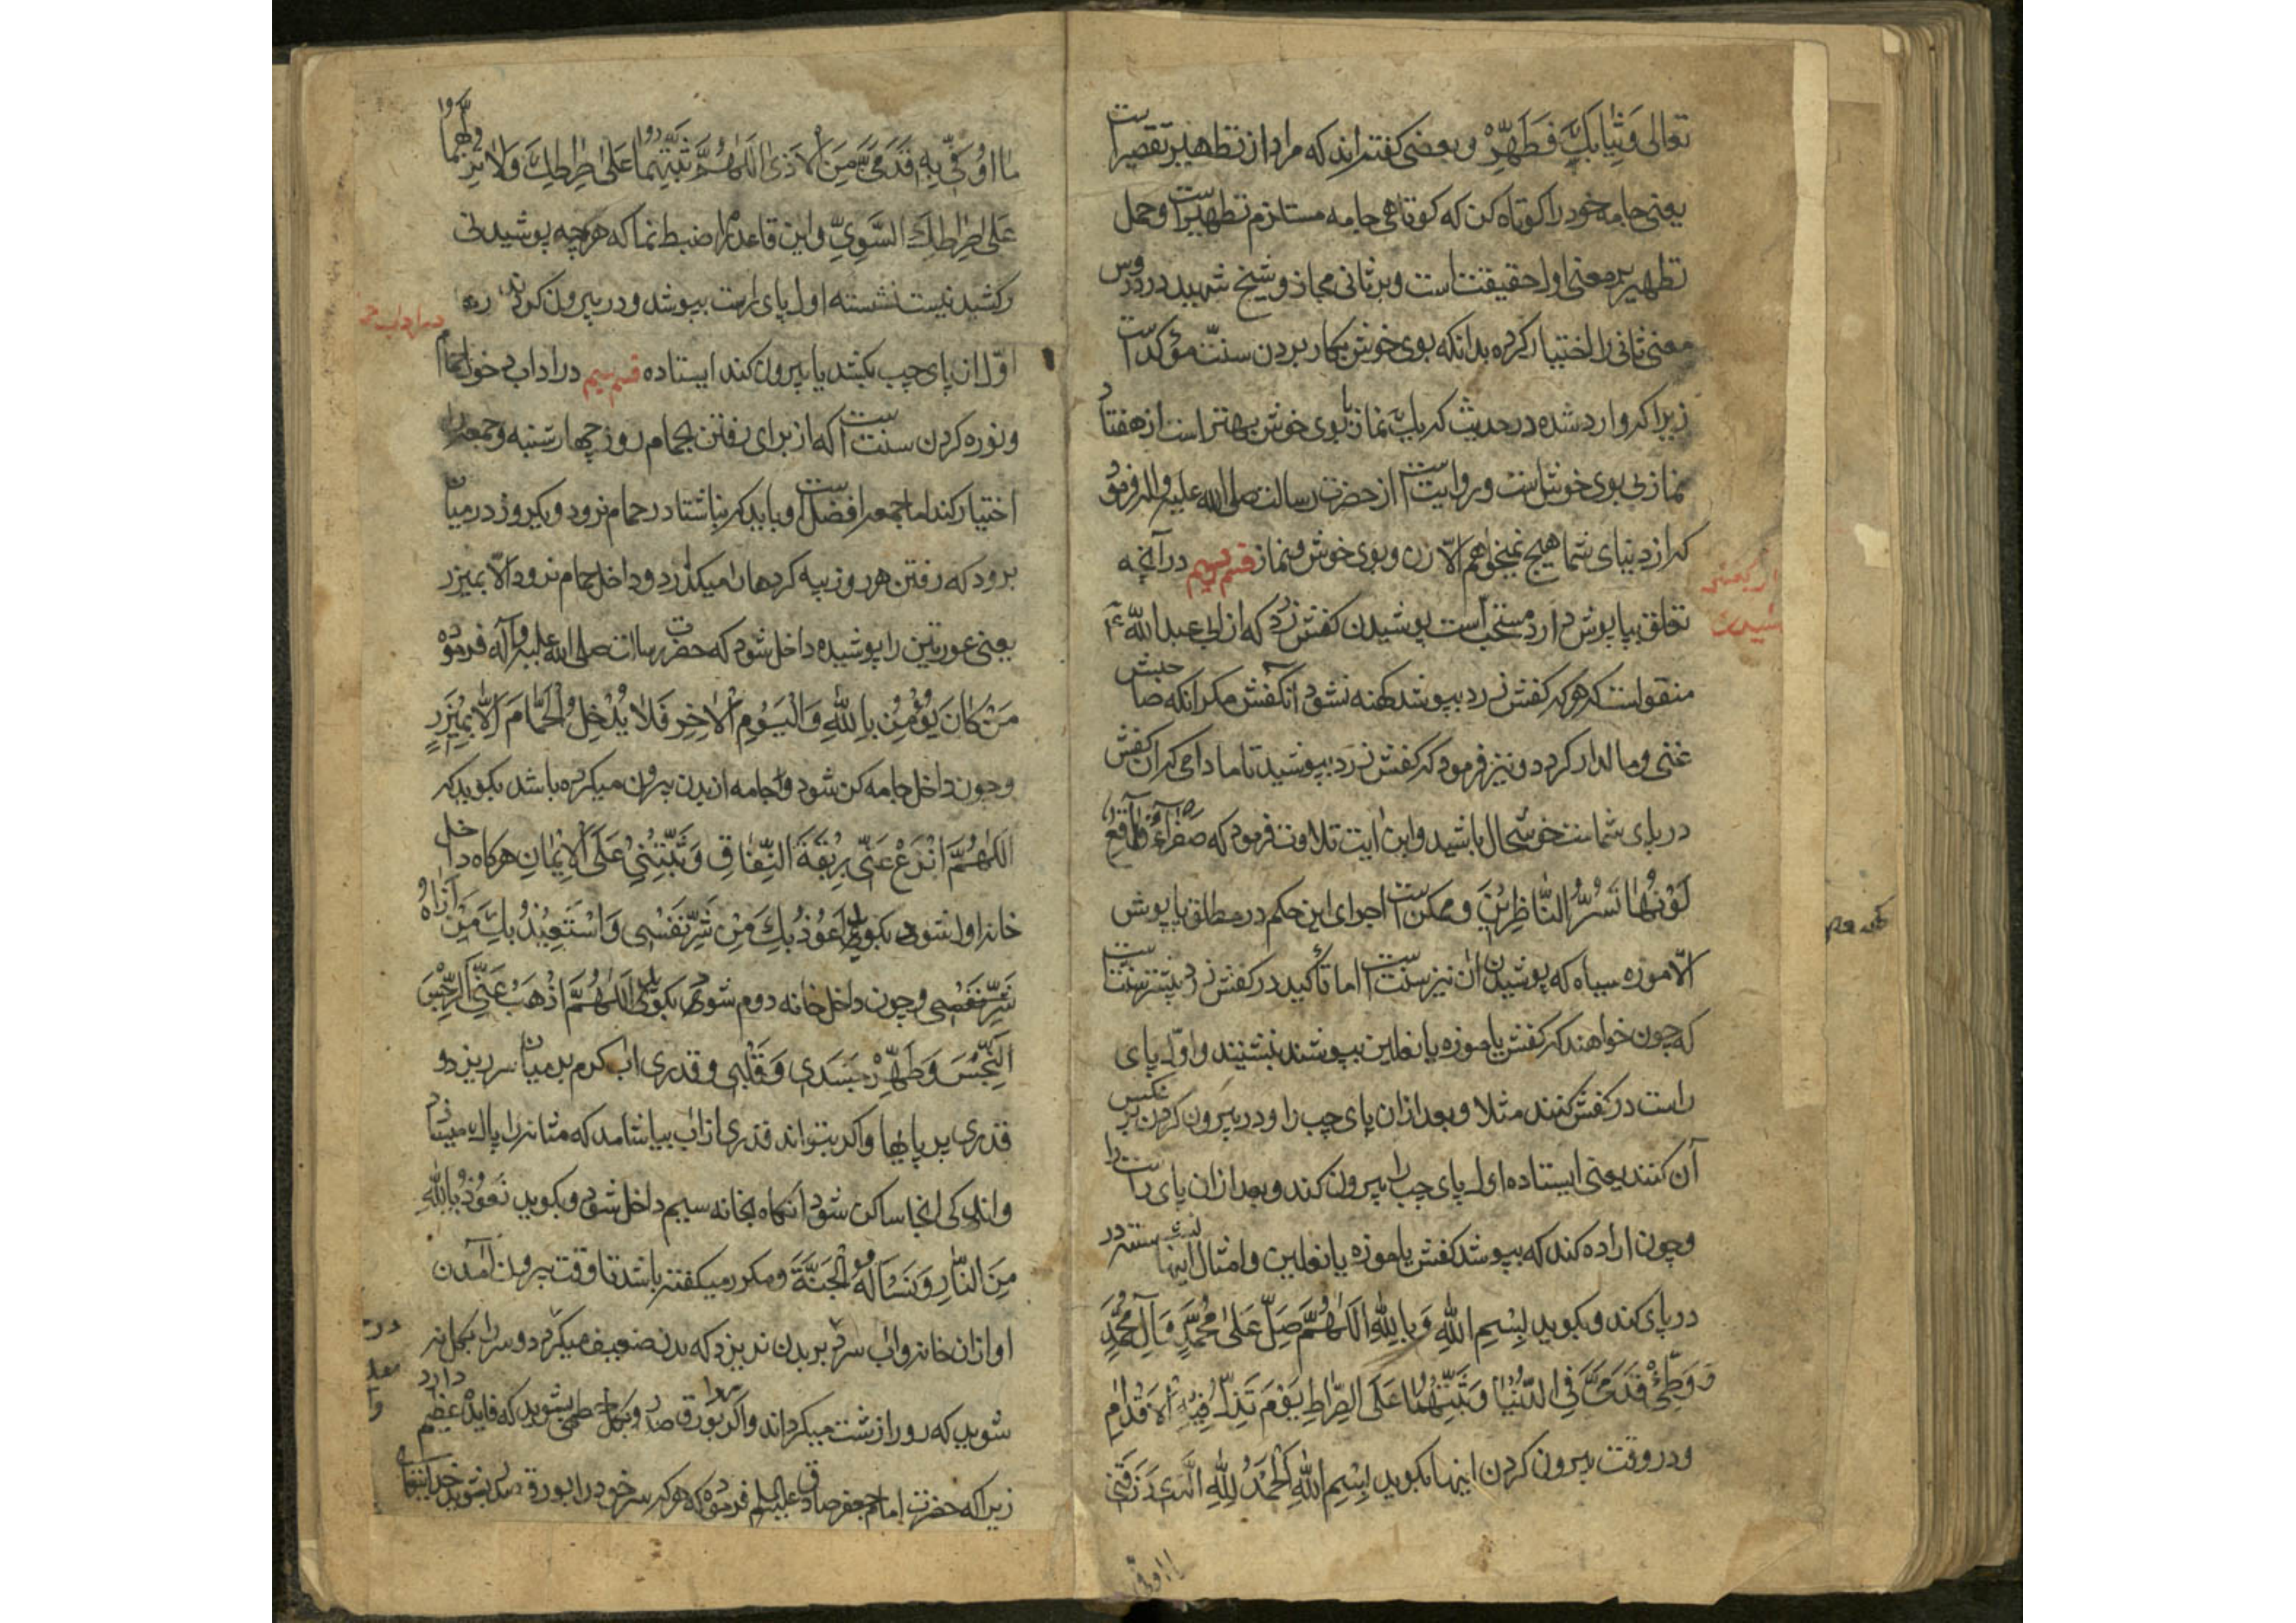 تعالی وَثِیَابَکَ فَطَهِّرْ و بعضی کفته‌اند که مراد از تطهیر تقصیر است
یعنی جامه خود را کوتاه کن که کوتاهی جامه مستلزم تطهیر است و حمل
تطهیر بر معنی اول حقیقت است و بر ثانی مجاز و شیخ شهید در دروس
معنی ثانی را اختیار کرده بدانکه بوی خوش بکار بردن سنت مؤکد است
زیرا که وارد شده در حدیث که یک نماز با بوی خوش بهتر است از هفتاد
نماز بی بوی خوش است و روایت است از حضرت رسالت صلی الله علیه و اله فرمود
که از دنیای شما هیچ نمیخواهم الّا زن و بوی خوش و نماز قسم درآنچه
تعلق بپاپوش دارد مستحبّ است پوشیدن کفش زرد که از ابی عبد اللّه ع
منقولست که هرکه کفش زرد بپوشد کهنه نشود آن کفش مکر انکه صاحبش
غنی و مالدار کردد و نیز فرمود که کفش زرد بپوشید تا مادامی که ان کفش
در پای شماست خوشحال باشید و این ایت تلاوت فرمود که صَفْرَآءُ فَاقِعٌ
لَوْنُهَا تَسُرُّ النَّاظِرِیْنَ و ممکن است اجرای این حکم در مطلق پاپوش
الّا موزه سیاه که پوشیدن ان نیز سنت است اما تأکید در کفش زرد بیشتر است
که چون خواهند که کفش یا موزه یا نعلین بپوشند بنشینند و اوّل پای
راست در کفش کنند مثلا و بعد از ان پای چپ را و در بیرون کردن بر عکس
آن کنند یعنی ایستاده اول پای چپ را بیرون کند و بعد از ان پای راست را
و چون اراده کند که بپوشد کفش یا موزه یا نعلین و امثال اینها نشسته در
در پای کند و بکوید بِسْمِ اللّهِ وَ بِاللّهِ اَللّهُمَّ صَلِّ عَلیٰ مُحَمَّدٍ وَ آلِ مُحَمَّدٍ
وَ وَطِّئْ قَدَمَیَّ فِی الدُّنْیَا وَ ثَبِّتْهُمَا عَلَی الصِّرَاطِ یَوْمَ تَزِلُّ فِیْهِ الْاَقْدَامُ
و در وقت بیرون کردن اینها بکوید بِسْمِ اللّهِ اَلْحَمْدُ لِلّهِ الَّذِی رَزَقَنِی
مَا اُوَقِّی بِهِ قَدَمَیَّ مِنَ الْاَذَیٰ اَللّهُمَّ ثَبِّتْهُمَا عَلیٰ صِرَاطِکَ وَلَا تُزِلَّهُمَا
عَلیٰ صِرَاطِکَ السَّوِیِّ و این قاعده را ضبط نما که هرچه پوشیدنی
و کشیدنیست نشسته اول پای راست بپوشد و در بیرون کردن
اوّل ان پای چپ بکشد یا بیرون کند ایستاده قسم سیم در اداب دخول حمام
و نوره کردن سنت است که از برای رفتن بحمام روز چهارشنبه و جمعه را
اختیار کند اما جمعه افضل است و باید که ناشتا در حمام نرود و یکروز در میان
برود که رفتن هر روز پیه کردها را میکذارد و داخل حمام نرود الّا بمیزر
یعنی عورتین را پوشیده داخل شود که حضرت رسالت صلی الله علیه و آله فرموده
مَنْ کَانَ یُؤْمِنُ بِاللّهِ وَ الْیَوْمِ الْاٰخِرِ فَلَا یُدْخِلُ الْحَمَّامَ اِلَّا بِمِیْزَرٍ
و چون داخل جامه کن شود و جامه از بدن بیرون میکرده باشد بکوید که
اَللّهُمَّ انْزَعْ عَنِّی رِبْقَةَ النِّفَاقِ وَ ثَبِّتْنِیْ عَلَی الْاِیْمَانِ هرکاه داخل
خانه اول شود بکوید اَعُوْذُ بِکَ مِنْ شَرِّ نَفْسِی وَ اسْتَعِیْذُ بِکَ مِنْ اَذَاهُ
شَرِّ نَفْسِی و چون داخل خانه دوم شود بکوید اَللّهُمَّ اذْهَبْ عَنِّی الرِّجْسَ
النِّجْسَ وَ طَهِّرْ جَسَدِی وَ قَلْبِی و قدری اب کرم بر میان سر ریزد و
قدری بر پایها و اکر بتواند قدری از اب بیاشامد که مثانه را پاک میسازد
و اندکی انجا ساکن شود انکاه بخانه سیم داخل شود و بکوید نَعُوْذُ بِاللّهِ
مِنَ النَّارِ وَ نَسْاَلُهُ الْجَنَّةَ و مکرر میکفته باشد تا وقت بیرون آمدن
او از ان خانه و اب سرد بر بدن نریزد که بدن ضعیف میکردد و سر را بکل نه
شوید که رو را زشت میکرداند و اکر بورق سدر و بکل خطمی بشوید که فایده عظیم دارد
زیرا که حضرت امام جعفر صادق علیه السلم فرموده که هرکه سر خود را بورق سدر بشوید خدایتعالی